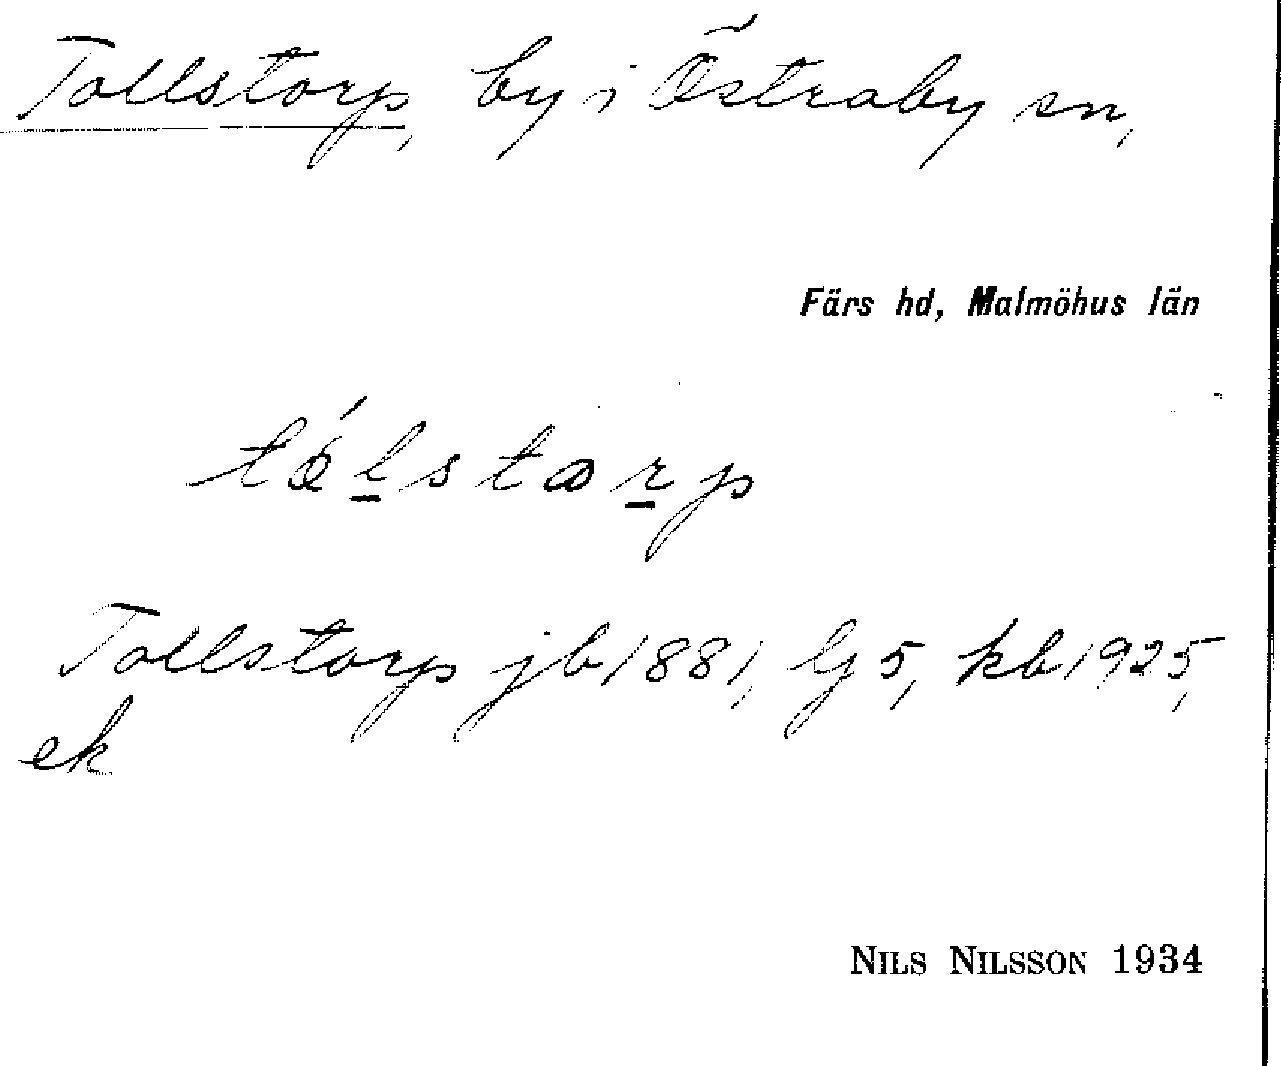 Tollstorp, by i Östraby sn,
Färs hd, Malmöhus län
Tollstorp jb 1881, Lj 5, kb 1925,
ek
NILS NILSSON 1934